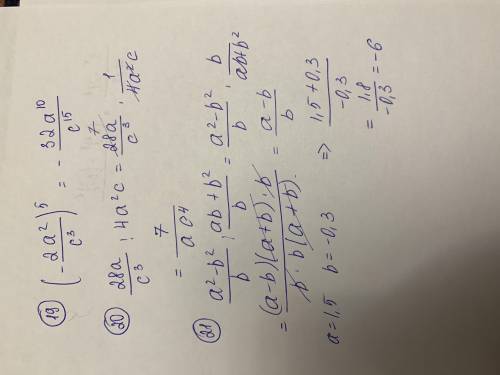 19 (-2a²/c³)⁵ = - 32a¹⁰/c¹⁵
20 28a/c³ : 4a²c = 7 28a/c³ · 1/4a²c
= 7/ac⁴
21 a²-b²/b : ab+b²/b = a²-b²/b · b/ab+b²
= (a-b)(a+b)·b/b·b(a+b) = a-b/b
a=1,5 b=-0,3 => 1,5+0,3/-0,3
= 1,8/-0,3 = -6